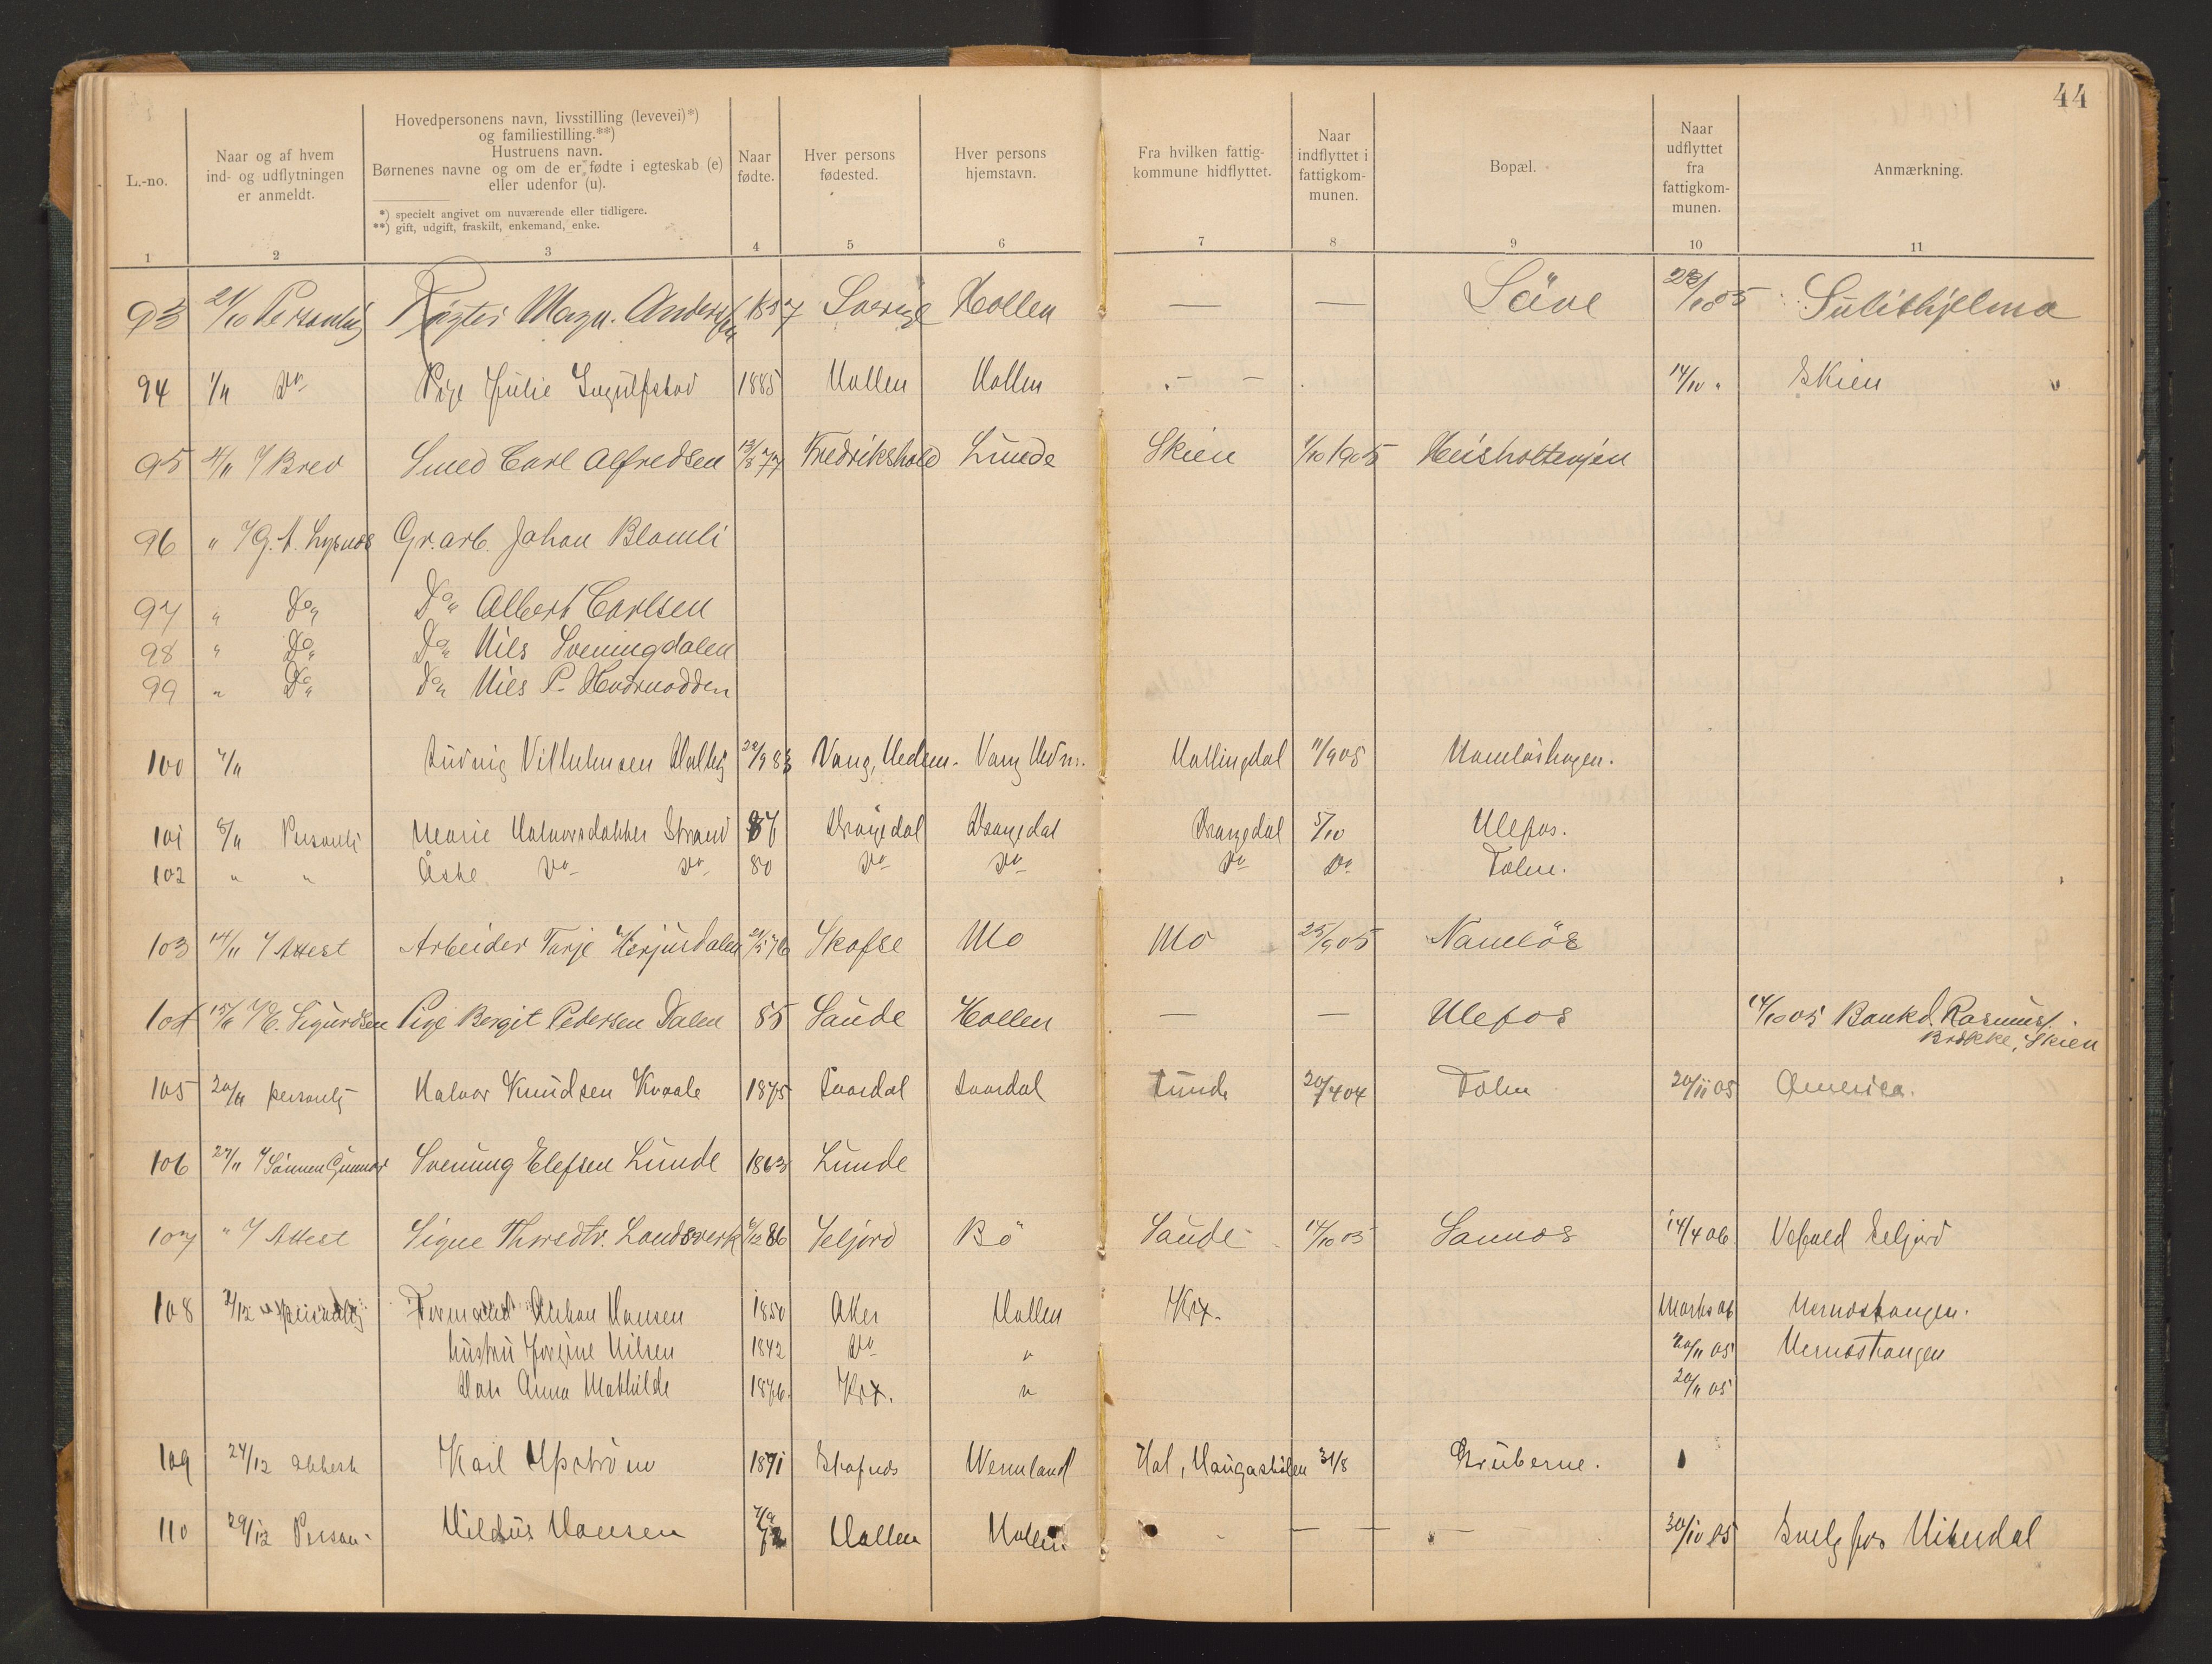 44
L.-no.
Naar og af hvem
ind- og udflytningen
er anmeldt.
Hovedpersonens navn, livsstilling (levevei)*)
og familiestilling.**)
Hustruens navn.
Børnenes navne og om de er fødte i egteskab (e)
eller udenfor (u).
*) specielt angivet om nuværende eller tidligere.
**) gift, udgift, fraskilt, enkemand, enke.
Naar
fødte.
Hver persons
fødested.
Hver persons
hjemstavn.
Fra hvilken fattig-
kommune hidflyttet.
Naar
indflyttet i
fattigkom-
munen.
Bopæl.
Naar
udflyttet
fra
fattigkom-
munen.
Anmærkning.
1 2 3 4 5 6 7 8 9 10 11
93 21/10 Personlig Magn. Anders 1857 Sverige Hollen — — Säve 23/10 05 Sulithjelma
94 1/11 Do Pige Julie Ingulfstad 1885 Hollen Hollen - - 14/10 " Skien
95 4/11 Brev Smed Carl Alfredsen 13/8 77 Fredrikshald Lunde Skien 1/10 1905 Heisholtvejen
96 " G. A. Gr.arb. Johan Blomli
97 " Do Do Albert Carlsen
98 " Do Do Nils Sveningdalen
99 " Do Do Nils P. Hvdruodden
100 7/11 Ludvig Vilhelmsen 22/9 83 Vang, Hedem. Vang Hedm. Hallingdal 11/9 05 Namløshagen.
101 8/11 Personli Marie Halvorsdatter Strand 87 Drangedal Drangedal Drangedal 5/10 Ulefos.
102 " " Åshe Do Do 80 Do Do Do Do Tolne.
103 14/11 Attest Arbeider Tarje Herjusdalen 76 Skafse Mo Mo 25/9 05 Namløs
104 15/11 E. Sigurdsen Pige Bergit Pedersen Dalen 85 Saude Hollen — — Ulefos 14/10 05 Bankd. Rasmus
Brekke, Skien
105 20/11 personlig Halvor Knudsen Kvaale 1875 Svardal Svardal Lunde 20/7 04 Tolne 20/11 05 America.
106 27/11 Sønnen Gunnar Svenung Elefsen Lunde 1863 Lunde
107 " Attest Signe Thorsdtr. Landsverk 86 Seljord Bö Saude 14/10 05 Sannes 14/4 06 Seljord
108 3/12 personlig Hansen 1850 Aker Hollen Krx. Marts 06 Hernæstangen.
hustru Jorgine Nilsen 1842 Do " 20/11 05 Hernæstangen
Anna Mathilde 1876. Krx. " 20/11 05
109 24/12 attest Karl 1871 Wermland Hol, Haugastølen 31/8 Gruberne.
110 29/12 Person- Hansen Hollen Hollen - — — — 30/10 05 Svelgfos Hiterdal